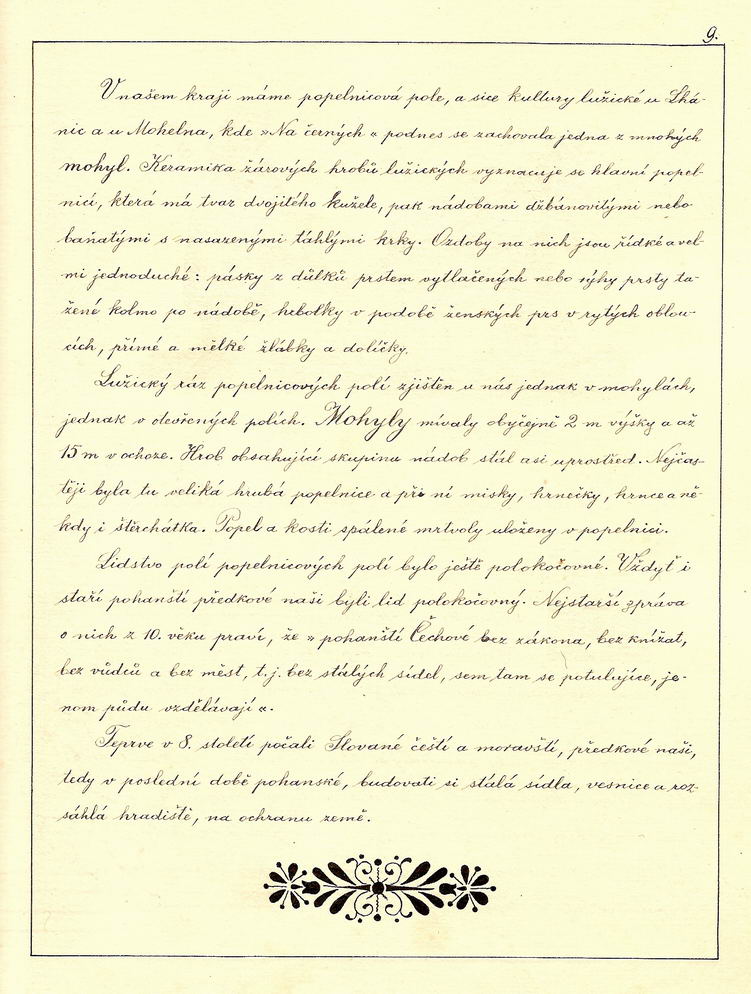 9.
V našem kraji máme popelnicová pole, a sice kultury lužické u Lhá-
nic a u Mohelna, kde »Na černých « podnes se zachovala jedna z mnohých
mohyl. Keramika žárových hrobů lužických vyznacuje se hlavní popel-
nicí, která má tvar dvojitého kužele, pak nádobami džbánovitými nebo
baňatými s nasazenými táhlými krky. Ozdoby na nich jsou řídké a vel-
mi jednoduché: pásky z důlků prstem vytlačených nebo rýhy prsty ta-
žené kolmo po nádobě, hrbolky v podobě ženských prs v rytých oblou-
cích, přímé a mělké žlábky a dolíčky.
Lužický ráz popelnicových polí zjištěn u nás jednak v mohylách,
jednak v otevřených polích. Mohyly mívaly obyčejně 2 m výšky a až
15 m v ochoze. Hrob obsahující skupinu nádob stál asi uprostřed. Nejčas-
těji byla tu veliká hrubá popelnice a při ní misky, hrnečky, hrnce a ně-
kdy i štěrchátka. Popel a kosti spálené mrtvoly uloženy v popelnici.
Lidstvo polí popelnicových polí bylo ještě polokočovné. Vždyť i
staří pohanští předkové naši byli lid polokočovný. Nejstarší zpráva
o nich z 10. věku praví, že » pohanští Čechové bez zákona, bez knížat,
bez vůdců a bez měst, t. j. bez stálých sídel, sem tam se potulujíce, je-
nom půdu vzdělávají «.
Teprve v 8. století počali Slované čeští a moravští, předkové naši,
tedy v poslední době pohanské, budovati si stálá sídla, vesnice a roz-
sáhlá hradiště, na ochranu země.